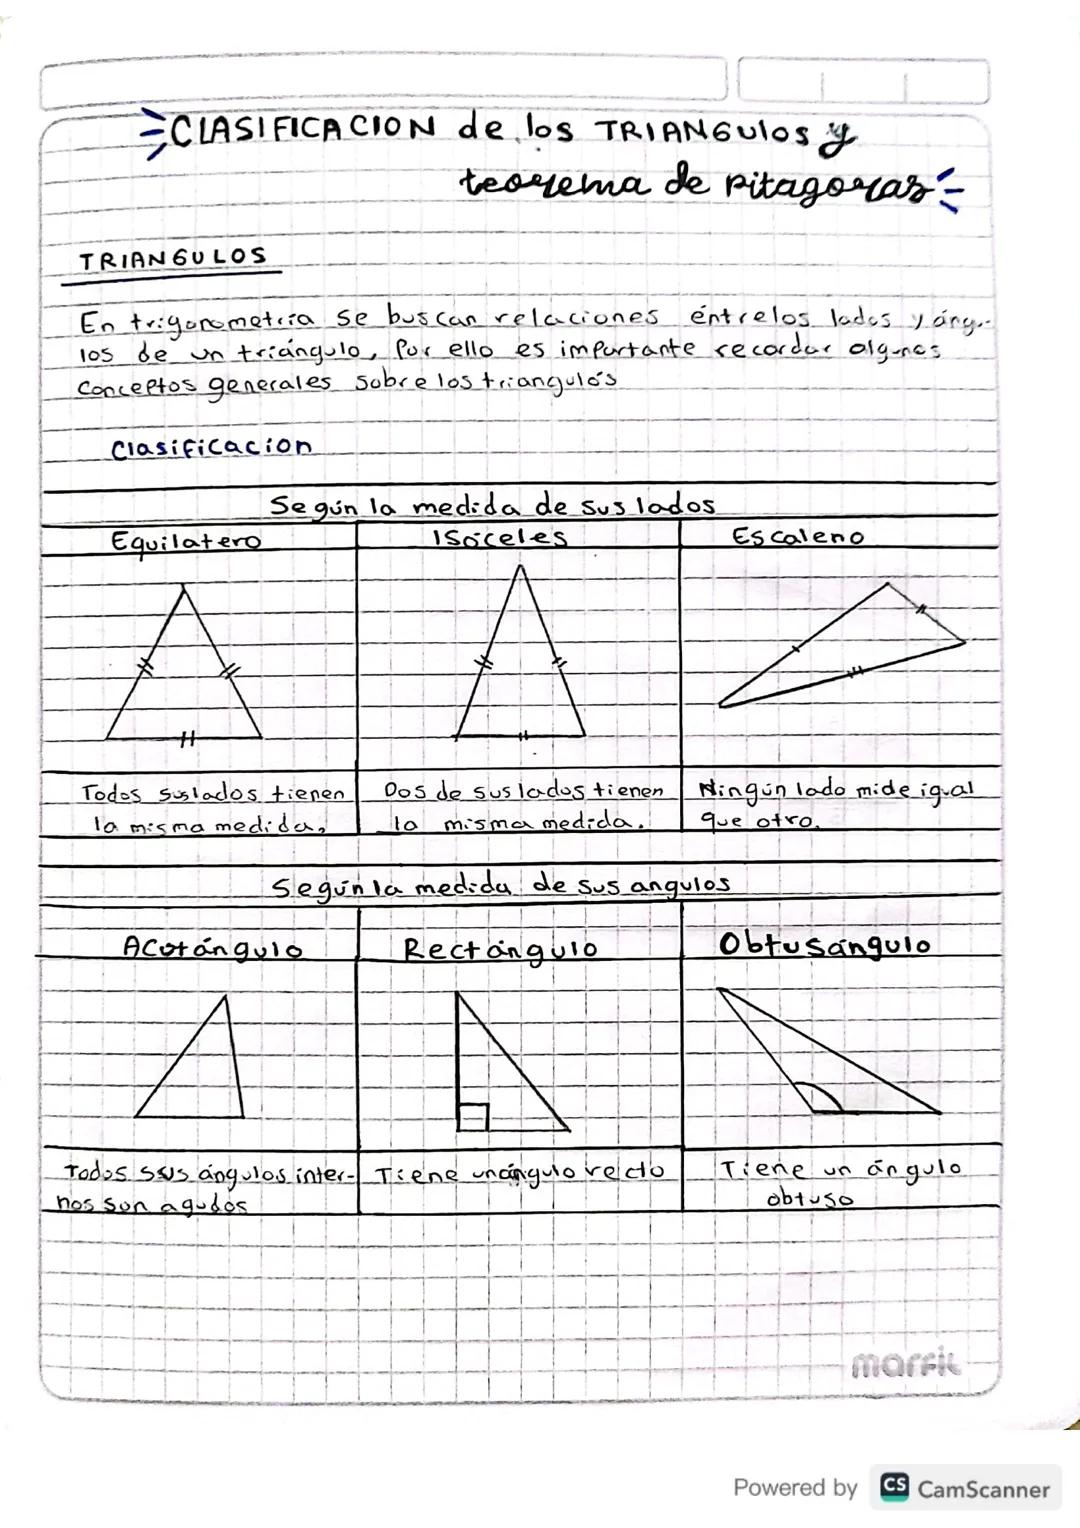 CLASIFICACION de los TRIANGulos y
teorema de Pitagoras
TRIANGULOS
En trigonometria se buscan relaciones éntrelos lados y ángu-
los de un triángulo, Por ello es importante recordar algunos
conceptos generales sobre los triangulós
Clasificacion
Según la medida de sus lados
Equilatero Isóceles Escaleno
Todos sus lados tienen Dos de sus lados tienen Ningún lado mide igual
la misma medida. la misma medida. que otro.
Según la medida de sus angulos
Acutángulo Rectángulo Obtusángulo
Todos sus ángulos inter- Tiene un ángulo recto Tiene un ángulo
nos son agudos obtuso
marfil
Powered by CS CamScanner